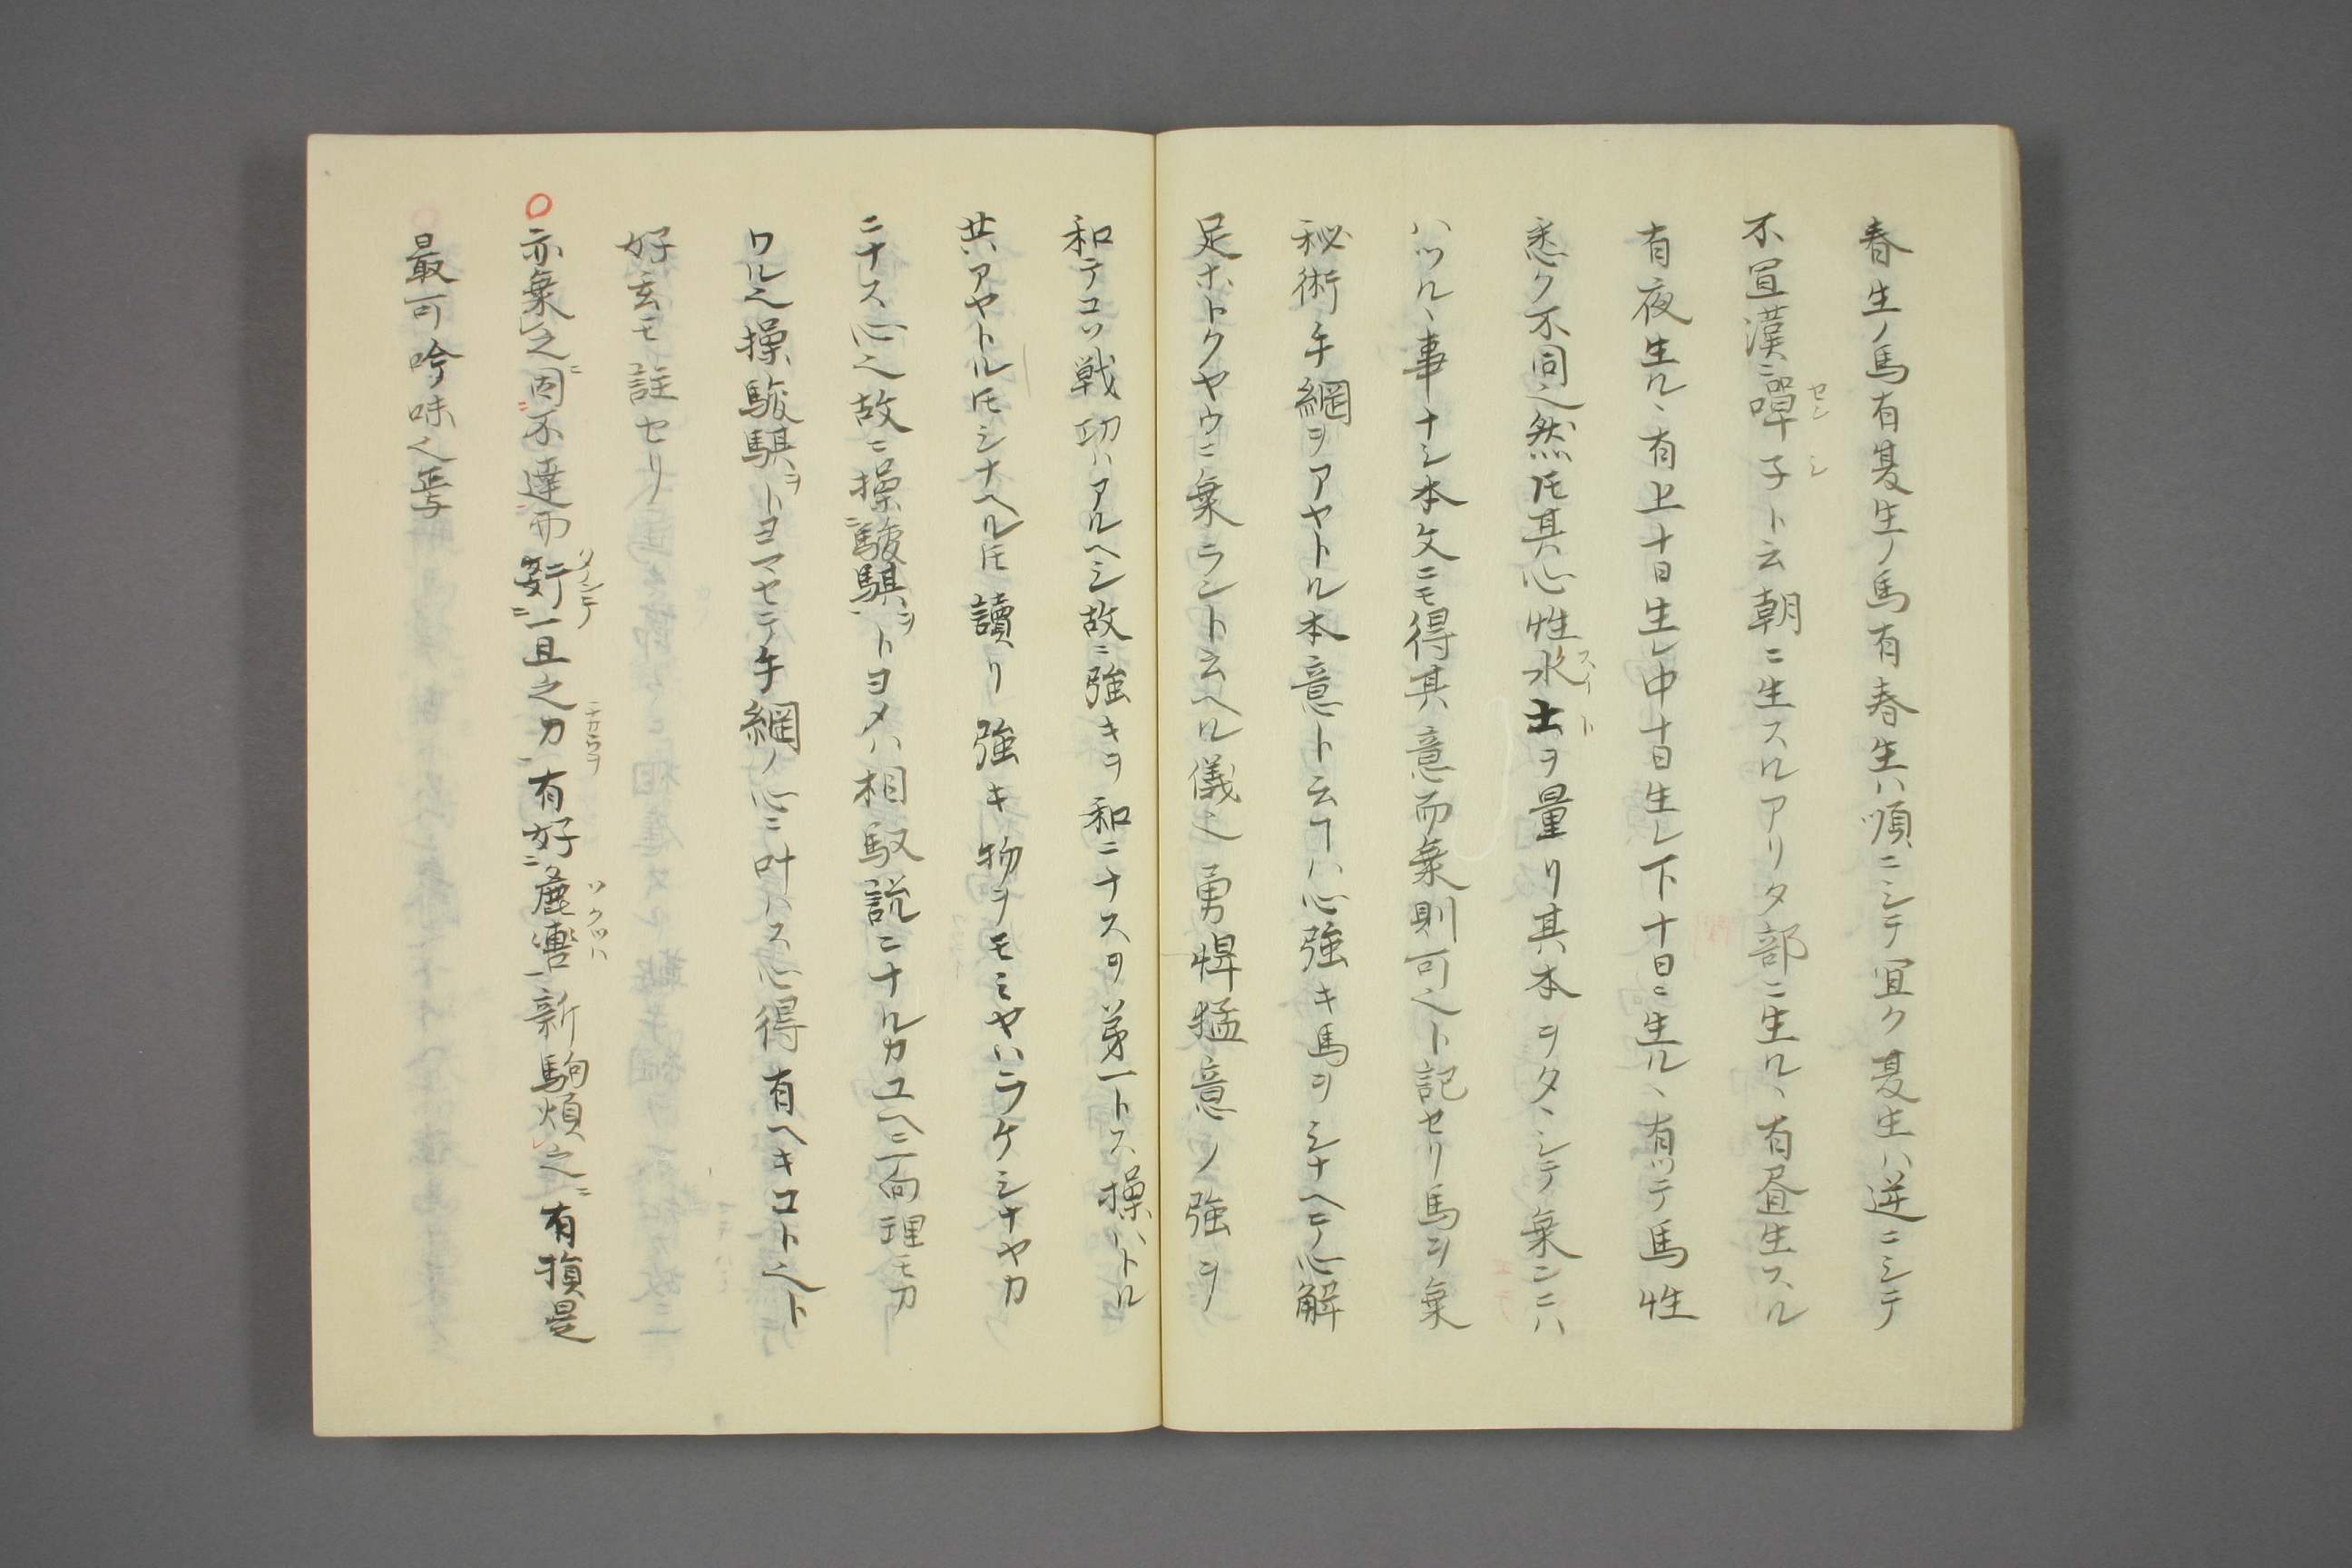 春生ノ馬有夏生ノ馬有春生ハ順ニシテ宜ク夏生ハ逆ニシテ
不宜漢ニ嘽子ト云朝ニ生スルアリタ部ニ生ル丶有昼生スル
有夜生ル丶有上十日生レ中十日生レ下十日ニ生ル丶有ツテ馬性
悉ク不同之然𪜈其心性水土ヲ量リ其本ヲタ丶シテ乗ンニハ
ハツル丶事ナシ本文ニモ得其意而乗則可之ト記セリ馬ヲ乗
秘術手綱ヲアヤトル本意ト云ヿハ心強キ馬ヲシナヘテ心解
足ホトクヤウニ乗ラント云ヘル儀之勇悍猛意ノ強ヲ
和テコソ戦功ハアルヘシ故ニ強キヲ和ニナスヲ第一トス操ハトル
共アヤトル𪜈シナヘル𪜈讀リ強キ物ヲモミヤハラケシナヤカ
ニナス心之故ニ操駿騏ヲトヨメハ相馭説ニナルカユヘニ一向理モカ
ワル之操駿騏ヲトヨマセテ手綱ノ心ニ叶ハス心得有ヘキコト之ト
好玄モ註セリ
○亦乗之因不達而一旦之力有好鹿新駒煩之有損是
最可吟味く